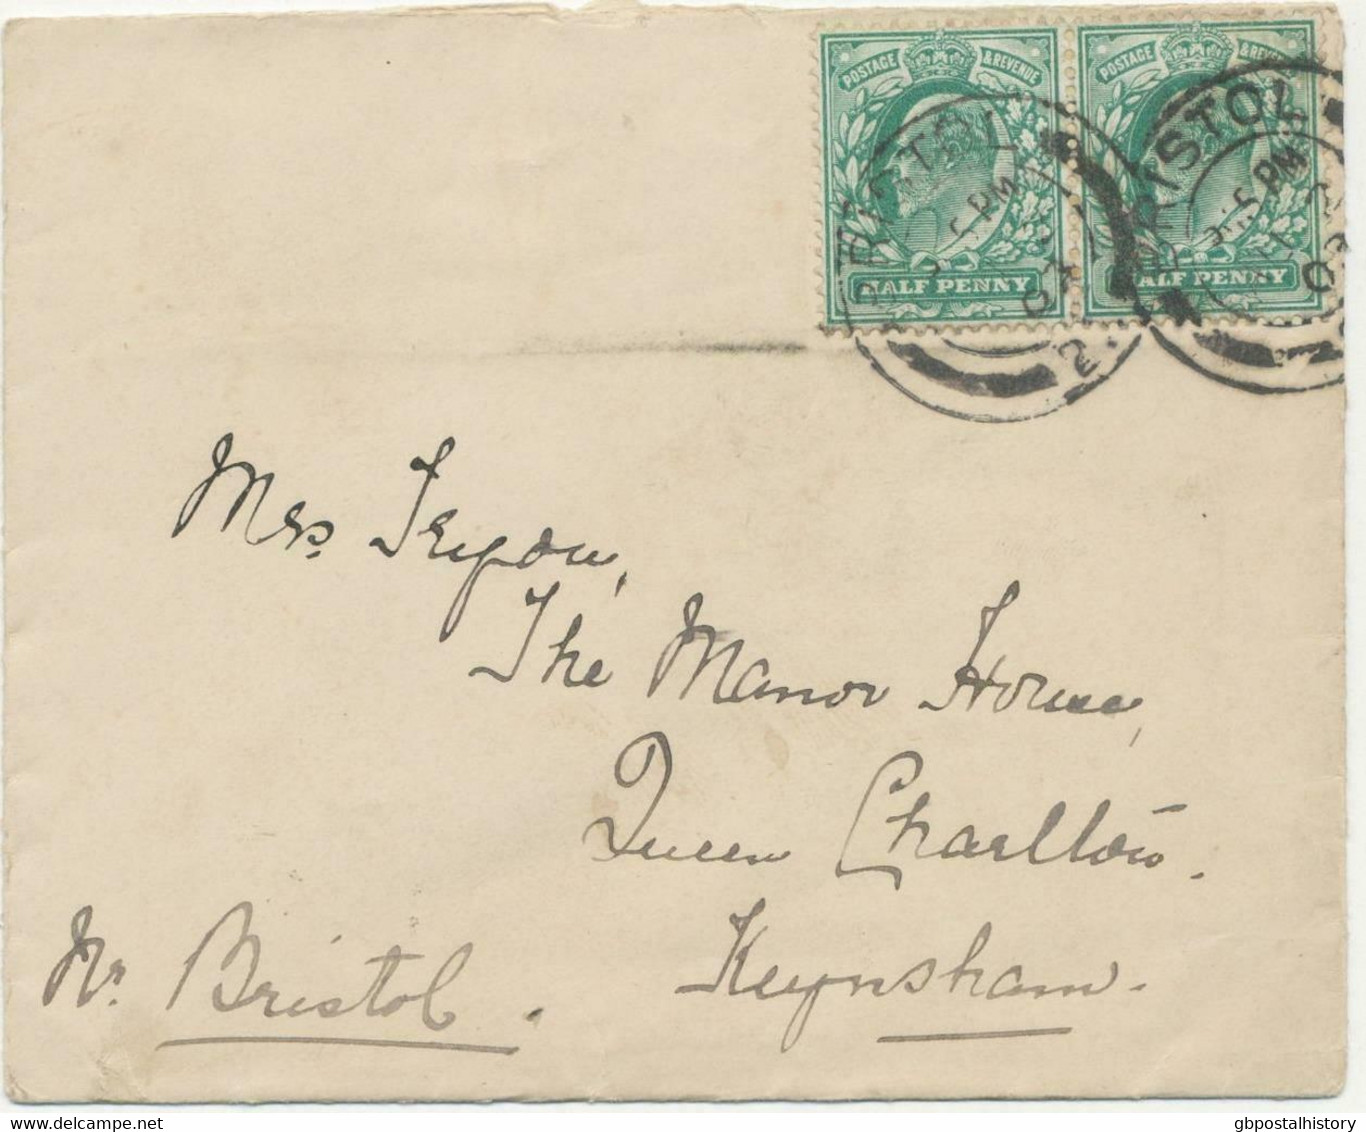 POSTAGE & REVENUE
HALF PENNY
POSTAGE & REVENUE
HALF PENNY
BRISTOL
PM
03
2
BRISTOL
PM
03
Mrs. Tryon,
The Manor House,
Queen Charlton.
Keynsham.
Nr. Bristol.
www.delcampe.net
gbpostalhistory